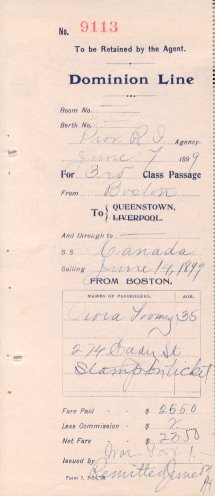 No. 9113
To be Retained by the Agent.
Dominion Line
Room No.
Berth No.
Prov. R.I. Agency.
June 7 1899
For 3rd Class Passage
From Boston
To QUEENSTOWN,
LIVERPOOL.
And through to
S.S. Canada
Sailing June 14, 1899
FROM BOSTON.
NAMES OF PASSENGERS. AGE.
Toomey 35
274 Eddy St
Stamp on ticket
Fare Paid - $ 2550
Less Commission - $
Net Fare - $
Issued by
Remitted June
Form 7,